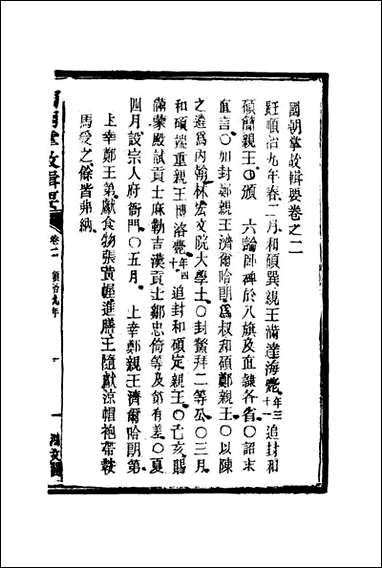 國朝掌故輯要卷之二
紅順治九年春二月和碩巽親王滿達海薨年三十一追封和
碩簡親王○頒　六諭卧碑於八旗及直隸各省○詔求
直言○加封鄭親王濟爾哈朗為叔和碩鄭親王○以陳
之遴為內翰林宏文院大學士○封鰲拜二等公○三月
和碩端重親王博洛薨年四十追封和碩定親王○己亥賜
滿蒙殿試貢士麻勒吉漢貢士鄒忠倚等及第有差○夏
四月設宗人府衙門○五月　上幸鄭親王濟爾哈朗第
上幸鄭王第獻食物張黃幄進膳王隨獻涼帽袍帶鞍
馬受之餘皆弗納
國朝掌故輯要
卷二
順治九年
一